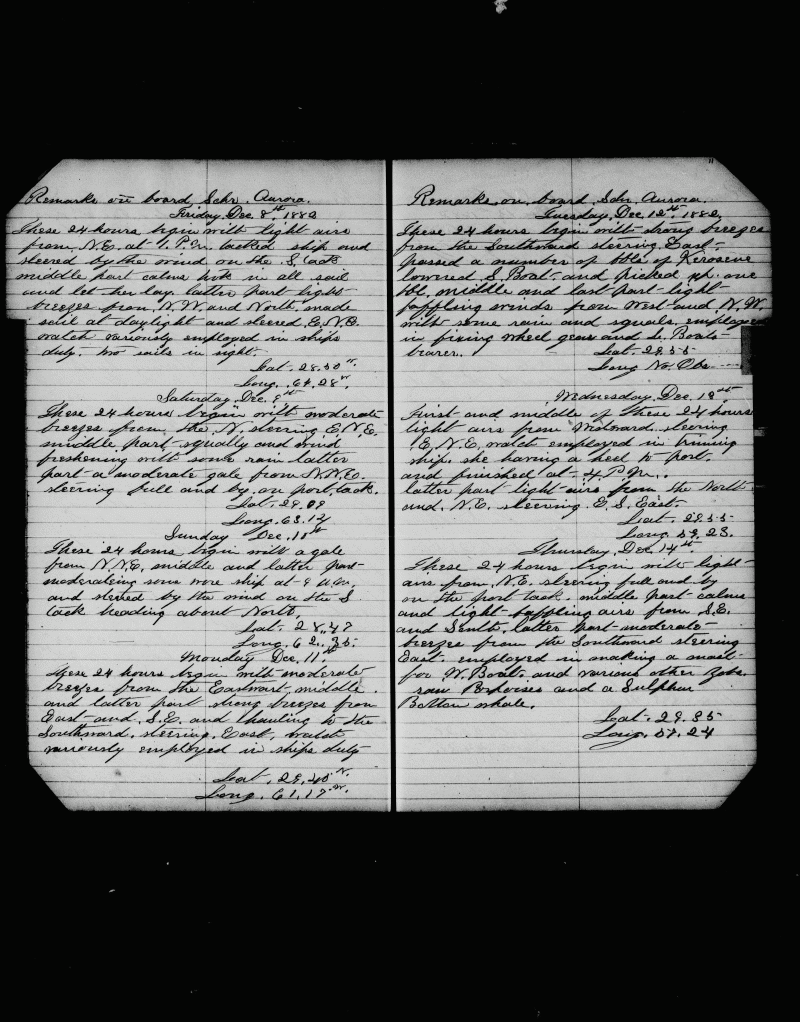 Remarks on board Schr. Aurora.
Friday, Dec. 8th, 1882
These 24 hours begin with light airs
from N.E. at 1. P.M. tacked ship and
steered by the wind on the S. tack
middle part calms took in all sail
and let her lay. latter part light
breezes from N.W. and North, made
sail at daylight and steered E.N.E.
watch variously employed in ships
duty. two sails in sight.
Lat. 28.50 N.
Long. 64.28 W.
Saturday Dec. 9th
These 24 hours begin with moderate
breezes from the N. steering E.N.E.
middle part squally and wind
freshening with some rain latter
part a moderate gale from N.N.E.
steering full and by, on port tack.
Lat. 29.09
Long. 63.14
Sunday Dec. 10th
These 24 hours begin with a gale
from N.N.E. middle and latter part
moderateing some wore ship at 9 A.M.
and steered by the wind on the S
tack heading about North.
Lat. 28.47
Long. 62.35
Monday Dec. 11th
these 24 hours begin with moderate
breezes from the Eastward, middle
and latter part strong breezes from
East and S.E. and hauling to the
Southward. steering East, watch
variously employed in ships duty
Lat. 29.40 N.
Long. 61.17 W.
11
Remarks on board Schr Aurora.
Tuesday, Dec 12th, 1882
These 24 hours begin with strong breezes
from the Southward steering East.
passed a number of bbls of Kerosene
lowered S. Boat and picked up one
bbl. middle and last part light
baffling winds from West and N.W.
with some rain and squals employed
in fixing wheel gear and L. Boats
bearer. Lat. 29.55
Long No. Obs
Wednesday Dec 13th
First and middle of these 24 hours
light airs from Westward steering
E.N.E. watch employed in trimming
ship. she having a heel to port.
and finished at 4. P.M.
latter part light airs from the North
and. N.E. steering E.S. East.
Lat. 29.55
Long. 59.23.
Thursday, Dec. 14th
These 24 hours begin with light
airs from N.E. steering full and by
on the port tack. middle part calms
and light baffling airs from S.E.
and South. latter part moderate
breezes from the Southward steering
East. employed in making a mast
for W. Boat. and various other Jobs.
saw Porpoises and a Sulphur
Bottom whale.
Lat. 29.35
Long. 57.24